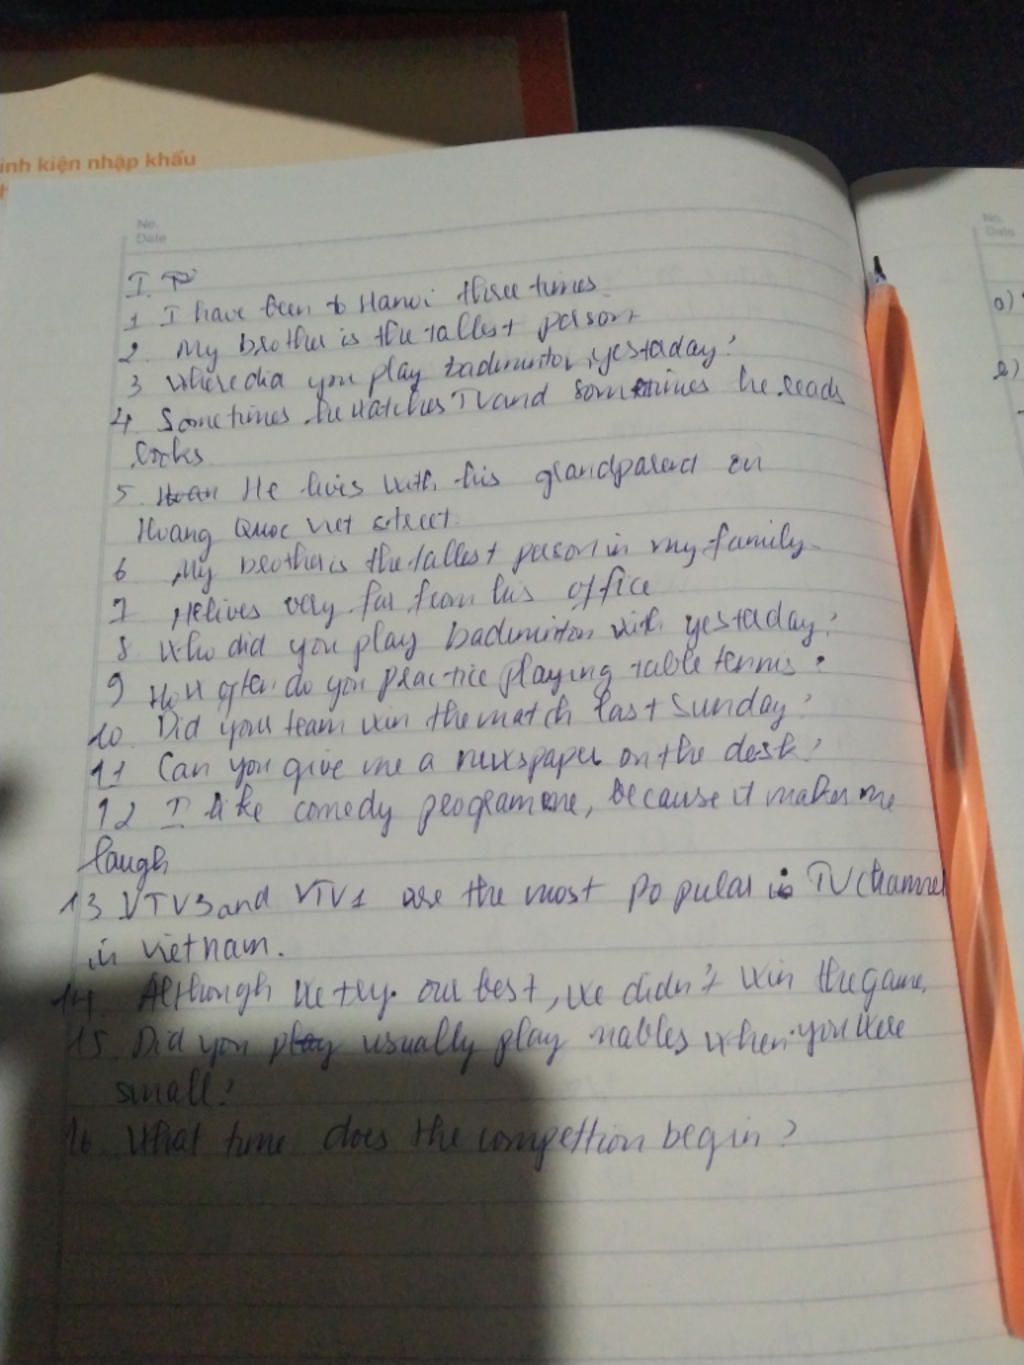 inh kiện nhập khẩu
No.
Date
No.
Date
I.
1 I have been to Hanoi three times.
2. My brother is the tallest person
3 Where did you play badminton yesterday?
4. Sometimes he watches TV and sometimes he reads
books
5. He lives with his grandparent on
Hoang Quoc Viet street.
6 My brother is the tallest person in my family.
7 He lives very far from his office
8 Who did you play badminton with yesterday?
9 How often do you practice playing table tennis?
10. Did your team win the match last Sunday?
11 Can you give me a newspaper on the desk?
12 I like comedy programme, because it makes me
laugh
13 VTV3 and VTV1 are the most popular TV channel
in Vietnam.
14. Although we try our best, we didn't win the game.
15. Did you usually play mables when you were
small?
16. What time does the compettion begin?
a)
b)